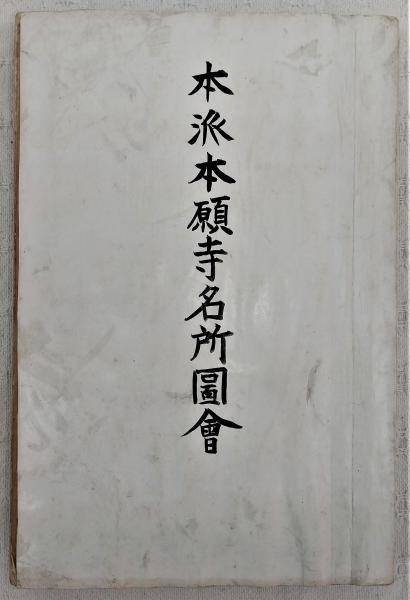 本派本願寺名所圖會